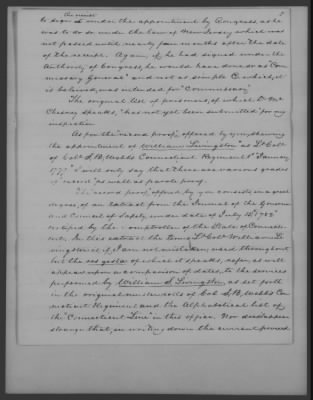 to sign it under the appointment by Congress, as he
was to do so under the law of New Jersey which was
not passed until nearly four months after the date
of the receipt. Again, if he had signed under the
Authority of Congress he would have done so as "Com-
missary General" and not as simple C. which, it
is believed, was intended for "Commissary"
The original list of prisoners, of which Dr. Mc
Chesney speaks, has not yet been submitted for my
inspection
As for the "record proof," offered by you, showing
the appointment of William Livingston as Lt. Col.
of Col. S. B. Webb's Connecticut Regiment 1st January
1777" I will only say that there are various grades
of record as well as parole proof.
The "record proof" offered by you consists in a great
degree, of an Extract from the Journal of the Governor
and Council of Safety, under date of July
certified by the Comptroller of the State of Connecti-
cut. In this extract the name Lt. Col. William Li
vingston is, if I am not mistaken, used throughout
but the res gestae of which it speaks, refer, as will
appear upon a comparison of dates, to the services
performed by William S. Livingston, as set forth
in the original muster rolls of Col. S. B. Webb's Con
necticut Regiment and the Alphabetical list of
the "Connecticut Line" in this office. Nor does it appear
strange that, in writing down the current